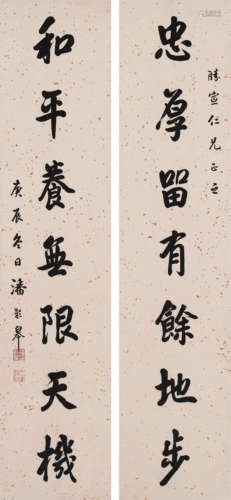 忠厚留有餘地步
勝宣仁兄正之
和平養無限天機
庚辰冬日潘齡皋